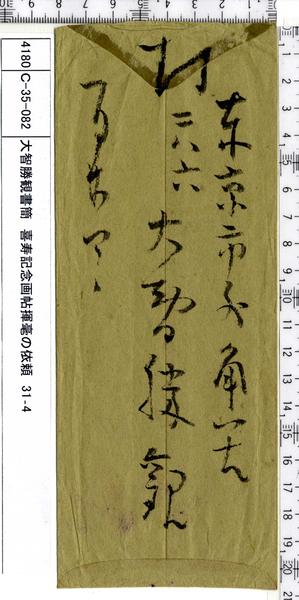 東京市外角筈
一六六
大智勝観
4180 C-35-082 大智勝観書簡 喜寿記念画帖揮毫の依頼 31-4